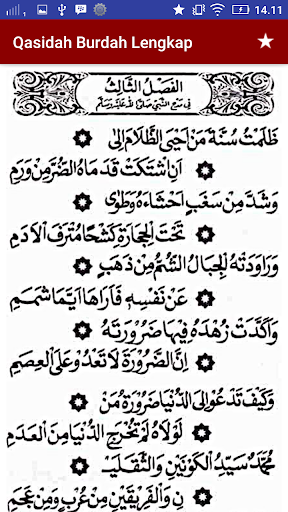 14.11
Qasidah Burdah Lengkap
الفَصْلُ الثَّالِثُ
فِي مَدْحِ النَّبِيِّ صَلَّى اللهُ عَلَيْهِ وَسَلَّمَ
ظَلَمْتُ سُنَّةَ مَنْ أَحْيَى الظَّلَامَ إِلَى
أَنِ اشْتَكَتْ قَدَمَاهُ الضُّرَّ مِنْ وَرَمِ
وَشَدَّ مِنْ سَغَبٍ أَحْشَاءَهُ وَطَوَى
تَحْتَ الْحِجَارَةِ كَشْحًا مُتْرَفَ الْأَدَمِ
وَرَاوَدَتْهُ الْجِبَالُ الشُّمُّ مِنْ ذَهَبٍ
عَنْ نَفْسِهِ فَأَرَاهَا أَيَّمَا شَمَمِ
وَأَكَّدَتْ زُهْدَهُ فِيهَا ضَرُورَتُهُ
إِنَّ الضَّرُورَةَ لَا تَعْدُو عَلَى الْعِصَمِ
وَكَيْفَ تَدْعُو إِلَى الدُّنْيَا ضَرُورَةُ مَنْ
لَوْلَاهُ لَمْ تَخْرُجِ الدُّنْيَا مِنَ الْعَدَمِ
مُحَمَّدٌ سَيِّدُ الْكَوْنَيْنِ وَالثَّقَلَيْـ
ـنِ وَالْفَرِيقَيْنِ مِنْ عُرْبٍ وَمِنْ عَجَمِ